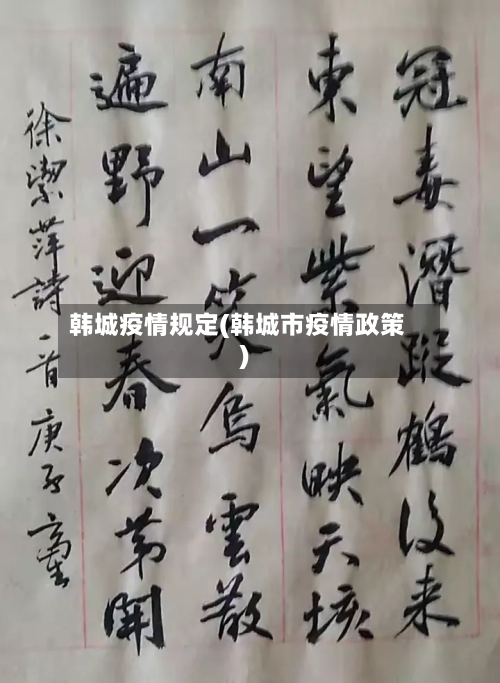 冠毒潜蹤鶴後来
東望紫氣映天垓
南山一笑烏雲散
遍野迎春次第開
徐潔萍詩一首庚子
韩城疫情规定(韩城市疫情政策
)